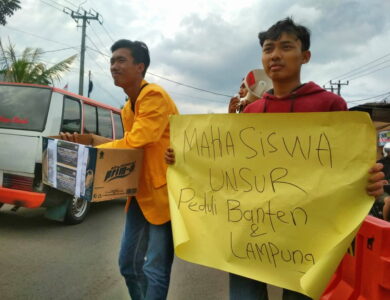 MAHASISWA
UNSUR
Peduli Banten
&
LAMPUNG